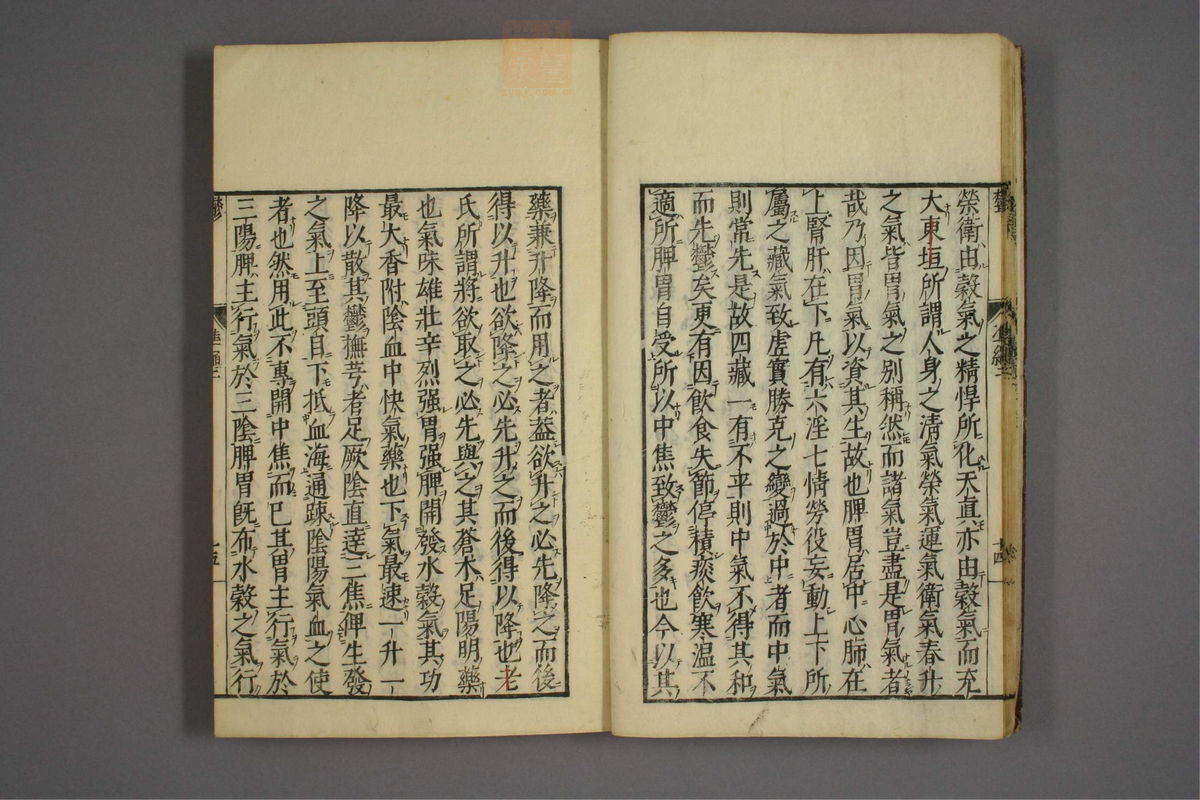 榮衛由穀氣之精悍所化天眞亦由穀氣而充
大東垣所謂人身之清氣榮氣運氣衛氣春升
之氣皆胃氣之別稱然而諸氣豈盡是胃氣者
哉乃因胃氣以資其生故也脾胃居中心肺在
上腎肝在下凡有六淫七情勞役妄動上下所
屬之藏氣致虛實勝克之變過於中者而中氣
則常先是故四藏一有不平則中氣不得其和
而先鬱矣更有因飮食失節停積痰飮寒温不
適所脾胃自受所以中焦致鬱之多也今以其
鬱
十四
藥兼升降而用之者葢欲升之必先降之而後
得以升也欲降之必先升之而後得以降也老
氏所謂將欲取之必先與之其蒼木足陽明藥
也氣味雄壯辛烈强胃强脾開發水穀氣其功
最大香附陰血中快氣藥也下氣最速一升一
降以散其鬱撫芎者足厥陰直達三焦俾生發
之氣上至頭目下抵血海通踈陰陽氣血之使
者也然用此不專開中焦而已其胃主行氣於
三陽脾主行氣於三陰脾胃旣布水穀之氣行
鬱
十五